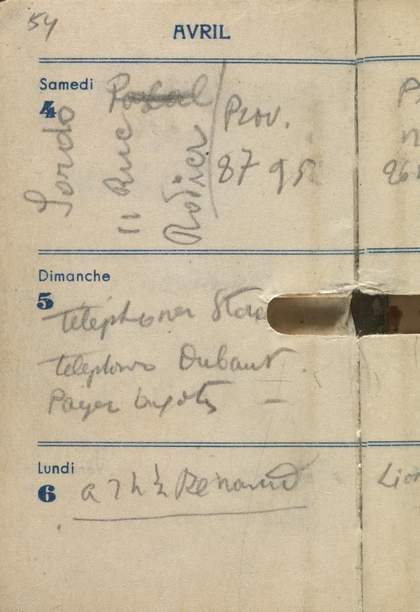 54
AVRIL
Samedi
4
Sordo
11 Rue
Rodier
Prov.
87 95
Dimanche
5
téléphoner
telephoner Dubaut
Payer impots
Lundi
6
a 7 h ½ Renaud